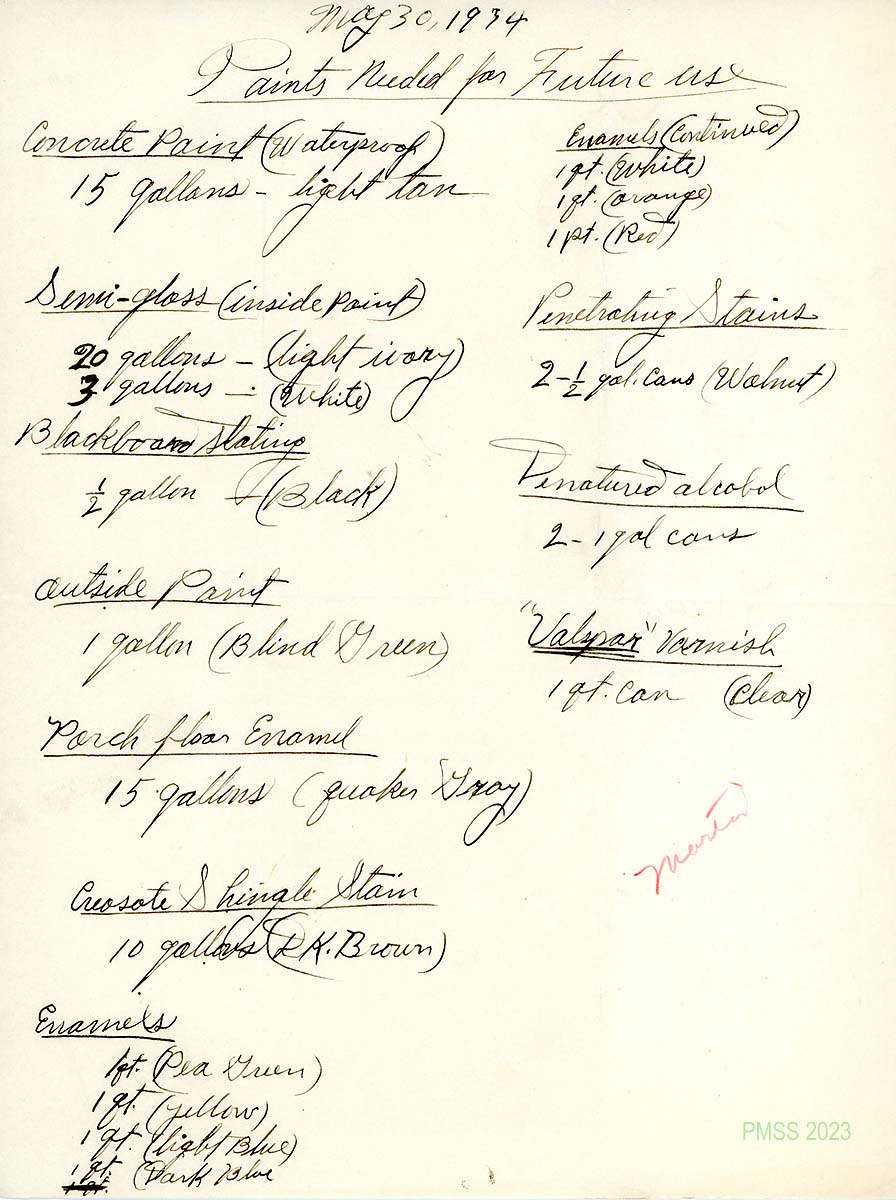 May 30, 1934
Paints Needed for Future use
Concrete Paint (Waterproof)
15 gallons - light tan
Semi-gloss (inside paint)
20 gallons - (light ivory)
3 gallons - (White)
Blackboard Slating
1/2 gallon - (Black)
Outside Paint
1 gallon (Blind Green)
Porch floor Enamel
15 gallons (quaker Gray)
Creosote Shingle Stain
10 gallons (DK. Brown)
Enamels
1qt. (Pea Green)
1qt. (yellow)
1qt. (light Blue)
1qt. (Dark Blue
Enamels (Continued)
1qt. (White)
1qt. (orange)
1 pt. (Red)
Penetrating Stains
2-1/2 gal. cans (Walnut)
Denatured alcohol
2-1 gal cans
"Valspar" Varnish
1 qt. can (Clear)
PMSS 2023